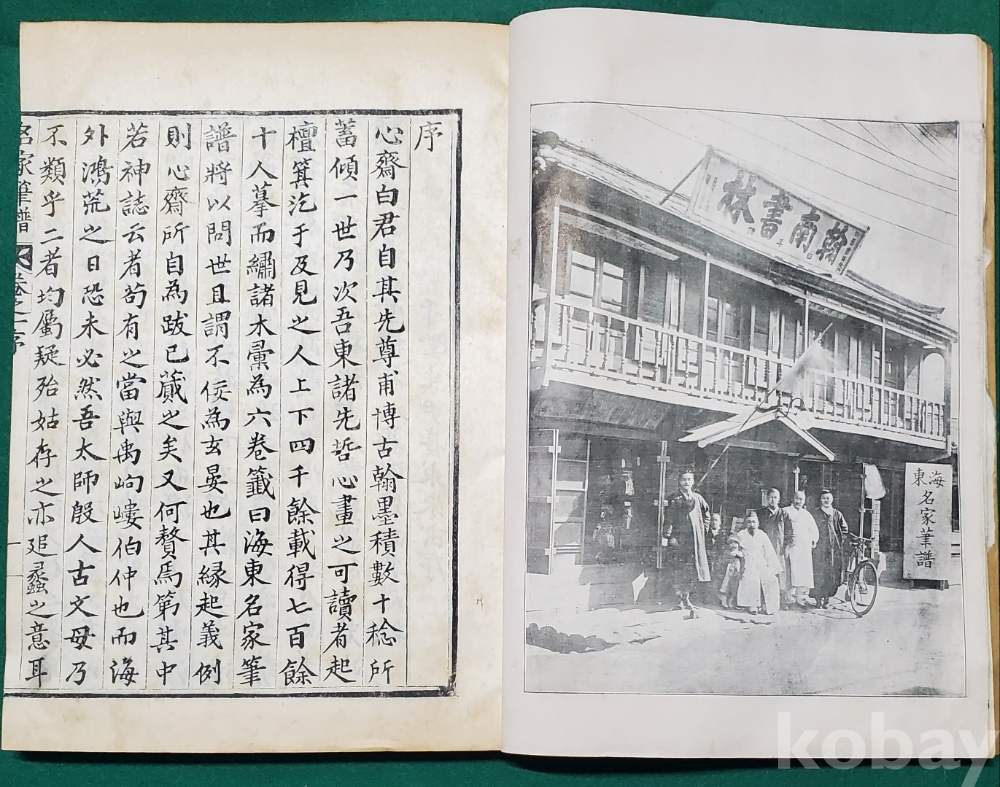 序
心齋白君自其先尊甫博古翰墨積數十稔所
蓄傾一世乃次吾東諸先哲心畫之可讀者起
檀箕汔于及見之人上下四千餘載得七百餘
十人摹而繡諸木彙為六卷籤曰海東名家筆
譜將以問世且謂不佞為玄晏也其緣起義例
則心齋所自為跋已蕆之矣又何贅焉第其中
若神誌云者茍有之當與禹岣嶁伯仲也而海
外鴻荒之日恐未必然吾太師殷人古文母乃
不類乎二者均屬疑殆姑存之亦𨓏蟸之意耳
名家筆譜 卷之一序
翰南書林
海東
名家筆譜
kobay